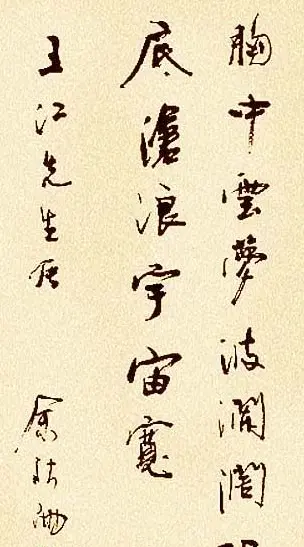 胸中雲夢波瀾闊
底滄浪宇宙寬
王江先生属
余秋雨